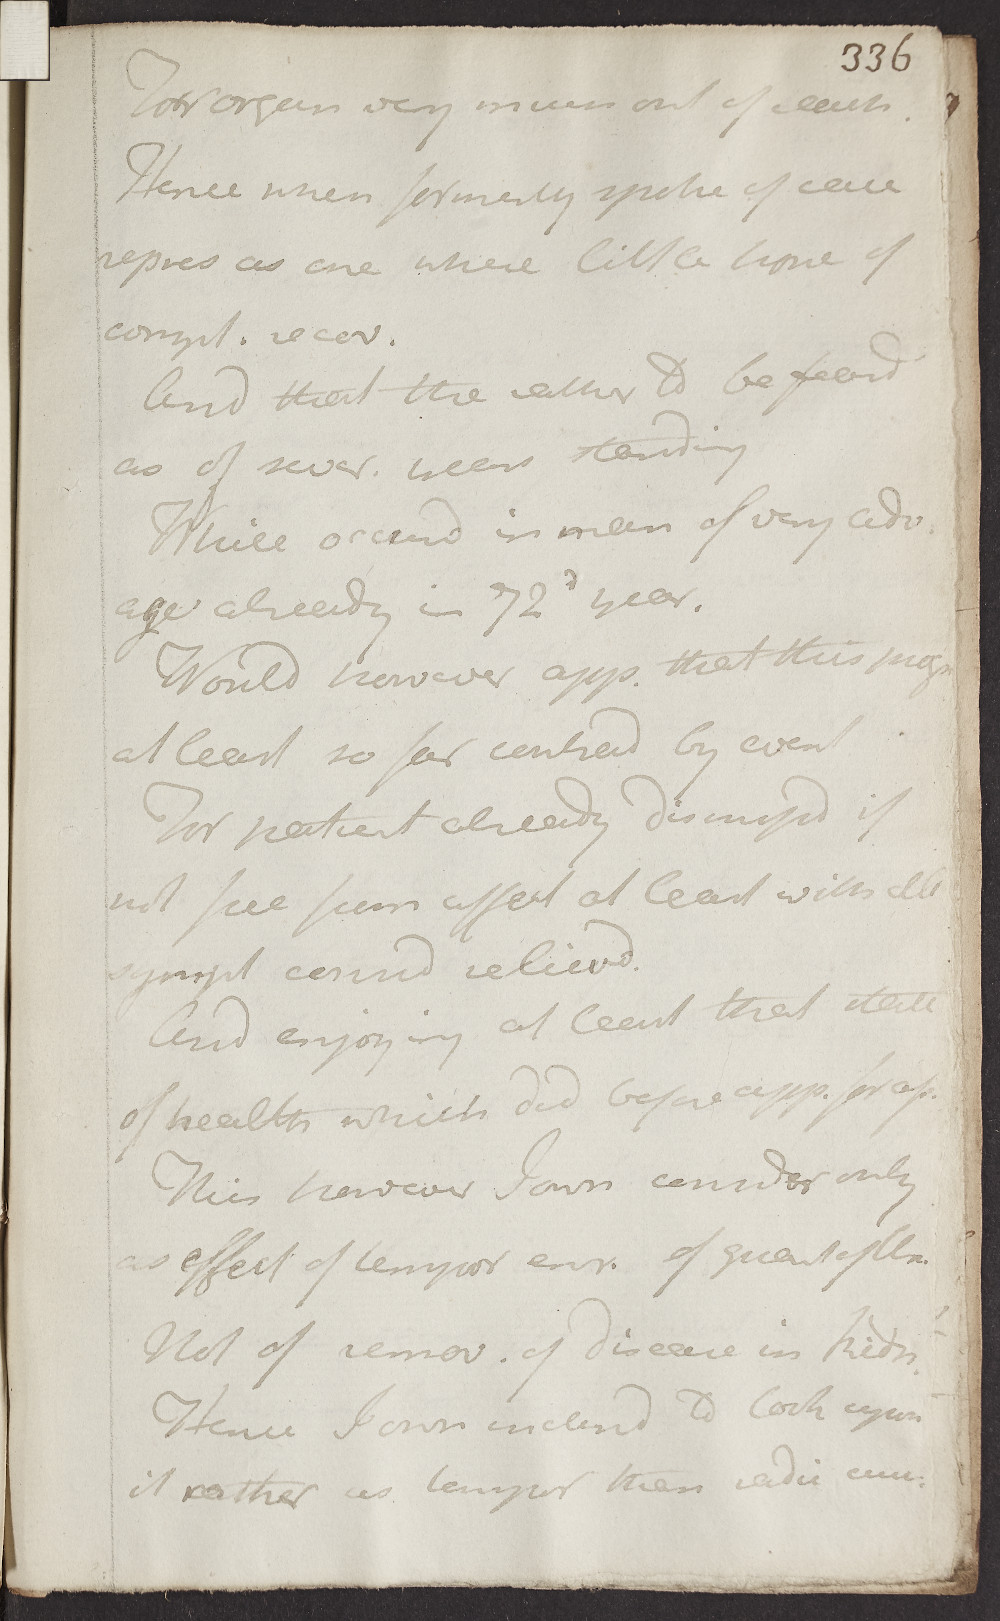 336
For organ very much out of reach.
Hence when formerly spoke of case
repres as one where little hope of
compl. recov.
And that the rather to be feard
as of sever. years standing
While occurd in man of very adv.
age already in 72d year.
Would however app. that this progn
at least so far contrad by event
For patient already dismissd if
not free from affect at least with all
sympt considd relievd.
And enjoying at least that state
of health which did before app. for ass.
This however I own consider only
as effect of tempor
Not of remov. of disease in Kidn.
Hence I own inclind to look upon
it rather as tempor than radic cure.